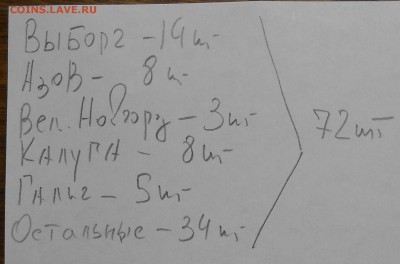 COINS.LAVE.RU
Выборг - 14 шт
Азов - 8 шт
Вел. Новгород - 3 шт
Калуга - 8 шт
Галич - 5 шт
Остальные - 34 шт
72 шт